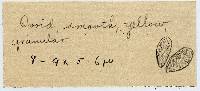 Ovoid, smooth, yellow,
granular
8-9 x 5-6µ